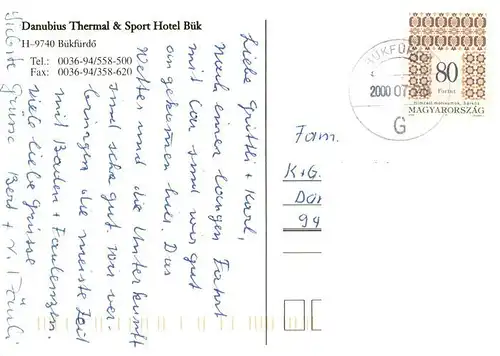 Danubius Thermal & Sport Hotel Bük
H-9740 Bükfürdő
Tel.: 0036-94/558-500
Fax: 0036-94/358-620
Liebe Gritli + Karl,
Nach einer langen Fahrt
mit Car sind wir gut
angekommen hier. Das
Wetter und die Unterkunft
sind sehr gut. Wir ver-
bringen die meiste Zeit
mit Baden + Faulenzen.
Viele liebe Grüsse
Bert + V.
Liebste Grüsse
BÜKFÜR
2000 07
G
80
Forint
MAGYARORSZÁG
Fam.
K+G.
Dor
94